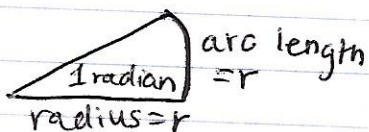 arc length
=r
1 radian
radius=r